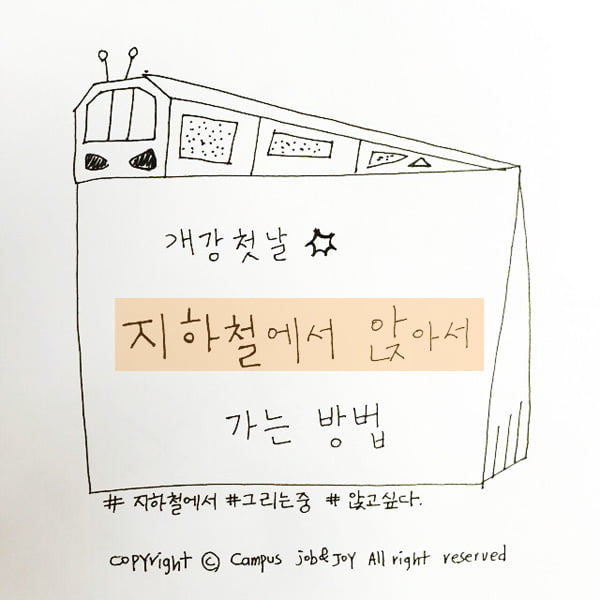 개강첫날
지하철에서 앉아서
가는 방법
# 지하철에서 #그리는중 # 앉고싶다.
copyright ⓒ Campus job&Joy All right reserved